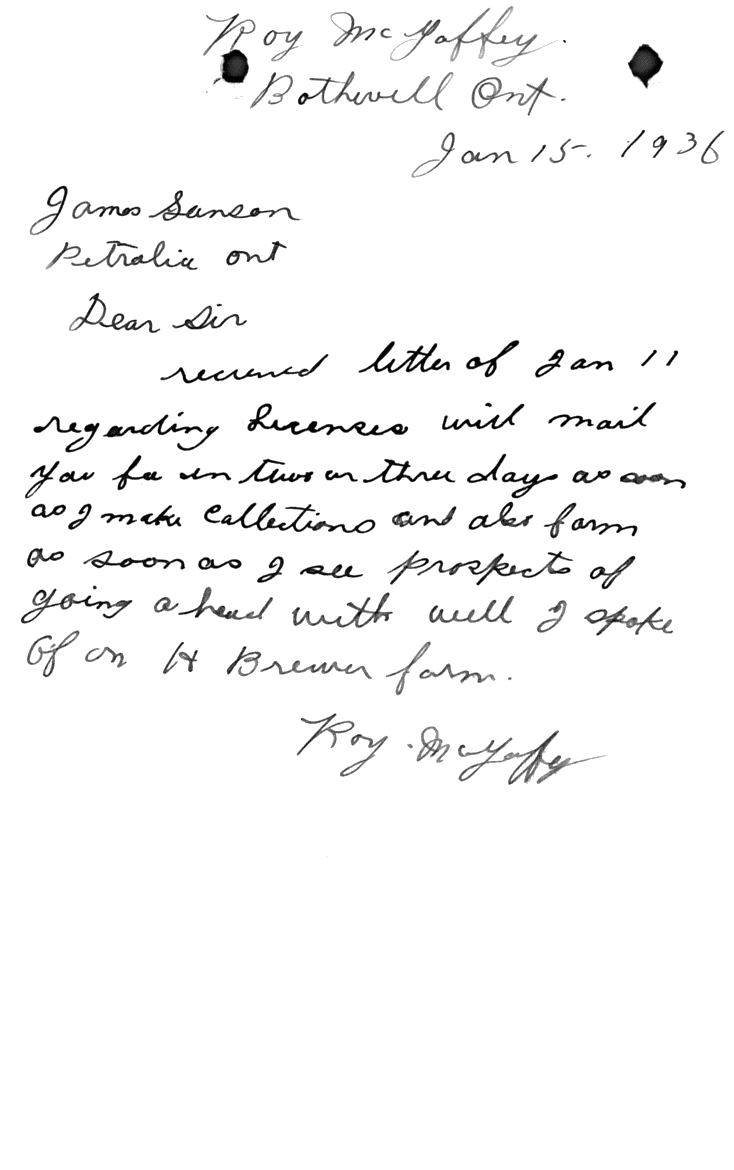 Roy McGaffey.
Bothwell Ont.
Jan 15. 1936
James Sanson
Petrolia ont
Dear Sir
recieved letter of Jan 11
regarding licenses will mail
you fee in two or three days as soon
as I make Collections and also form
as soon as I see prospects of
going a head with well I spoke
Of on H Brewer farm.
Roy. McGaffey